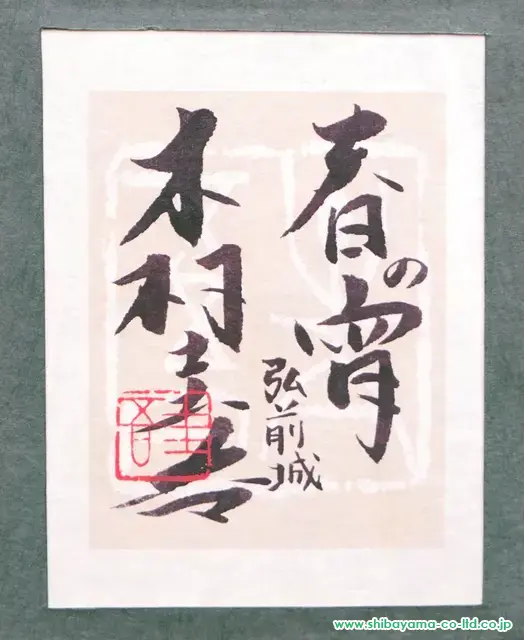 春の宵
弘前城
木村圭吾
www.shibayama-co-ltd.co.jp